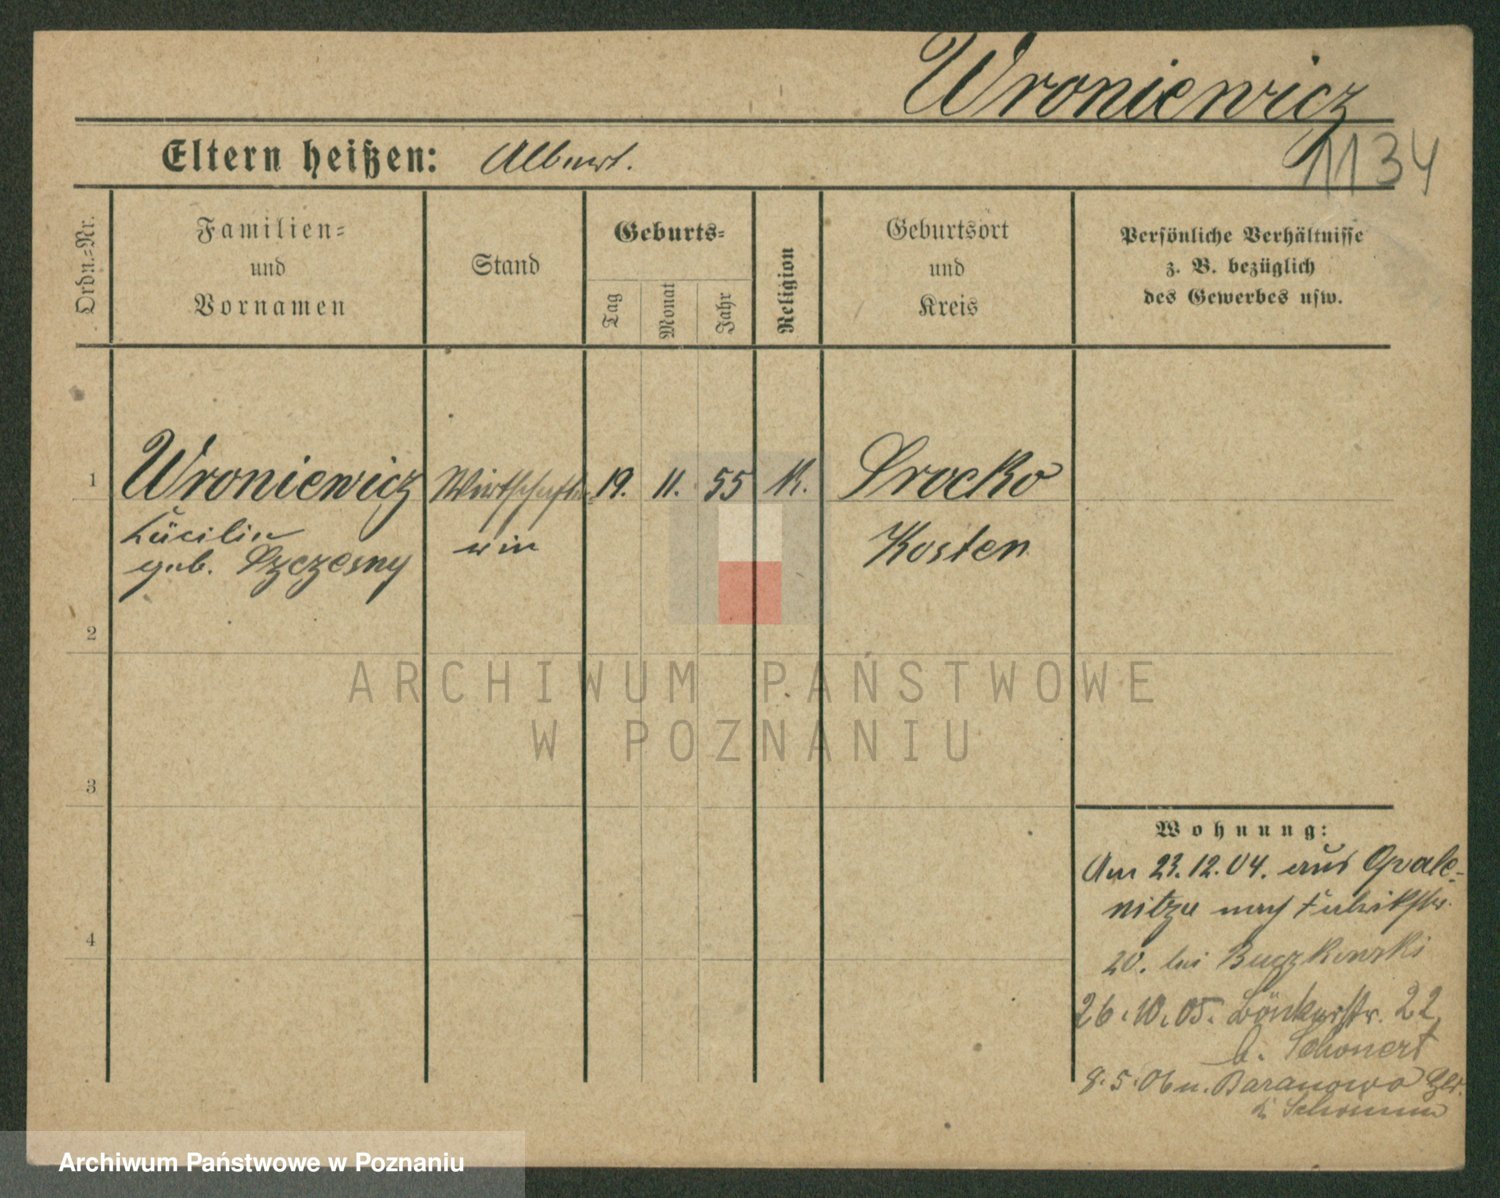 Wroniewicz
1134
Eltern heißen: Albert.
Ordn.-Nr.
Familien-
und
Vornamen
Stand
Geburts-
Tag
Monat
Jahr
Religion
Geburtsort
und
Kreis
Persönliche Verhältnisse
z. B. bezüglich
des Gewerbes usw.
1 Wroniewicz Wirtschafte- 19. 11. 55 K. Srocko
Cäcilie
geb. Szczesny
rin
Kosten
2
ARCHIWUM PAŃSTWOWE
W POZNANIU
3
4
Wohnung:
Am 23.12.04. aus Opale-
nitza nach Fabrikstr.
20. bei Buczkowski
26.10.05. 22
b. Schonert
8.5.06 n. Baranowo
Archiwum Państwowe w Poznaniu